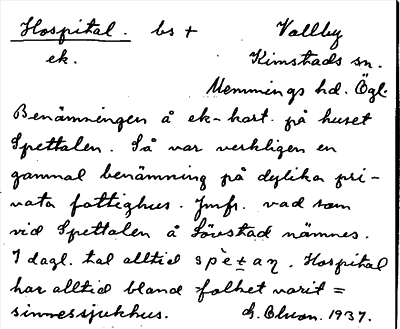 Hospital. bs + Vallby
ek. Kimstads sn.
Memmings hd. Ögl.
Benämningen å ek-kart. på huset
Spettalen. Så var verkligen en
gammal benämning på dylika pri-
vata fattighus. Jmfr. vad som
vid Spettalen å Lövstad nämnes.
I dagl. tal alltid spèt̲aṇ. Hospital
har alltid bland folket varit =
sinnessjukhus. G. Olson. 1937.